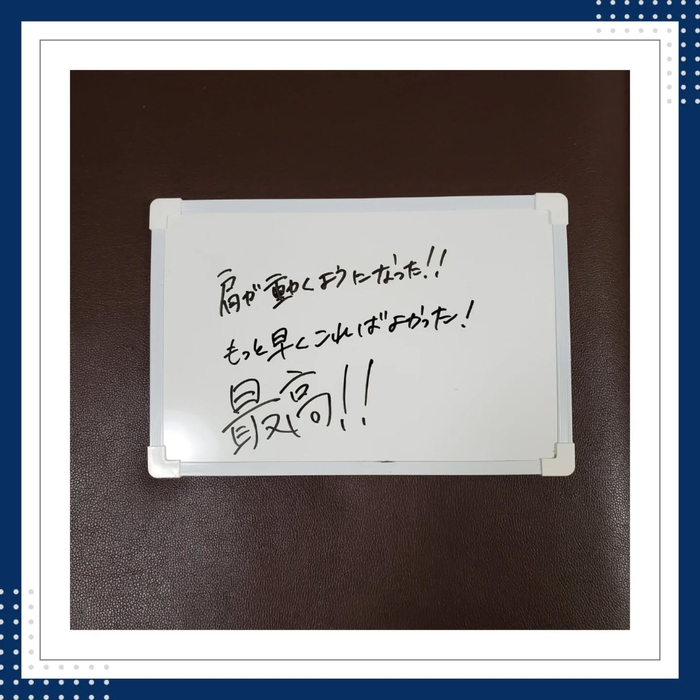 肩が動くようになった!!
もっと早くこればよかった!
最高!!